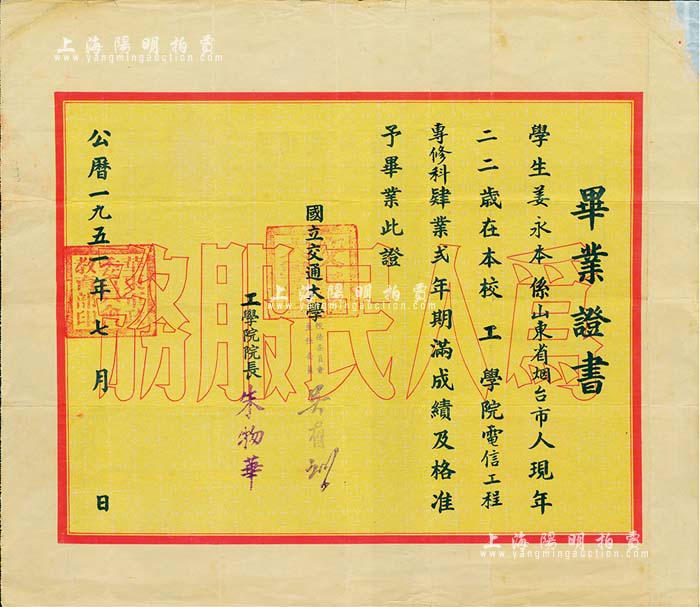 上海陽明拍賣
www.yangmingauction.com
畢業證書
學生姜永本係山東省烟台市人現年
二二歲在本校工學院電信工程
專修科肄業弍年期滿成績及格准
予畢業此證
國立交通大學
校務委員會
主任委員
吳有訓
工學院院長
朱物華
公曆一九五一年七月 日
為人民服務
上海陽明拍賣
www.yangmingauction.com
上海陽明拍賣
www.yangmingauction.com